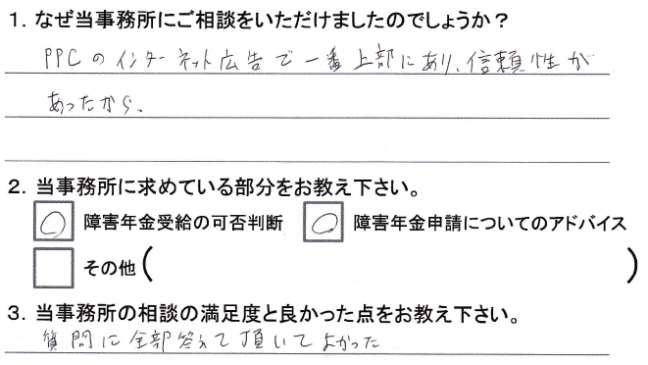 1. なぜ当事務所にご相談をいただけましたのでしょうか?
PPCのインターネット広告で一番上部にあり、信頼性が
あったから。
2. 当事務所に求めている部分をお教え下さい。
○ 障害年金受給の可否判断 ○ 障害年金申請についてのアドバイス
その他( )
3. 当事務所の相談の満足度と良かった点をお教え下さい。
質問に全部答えて頂いてよかった